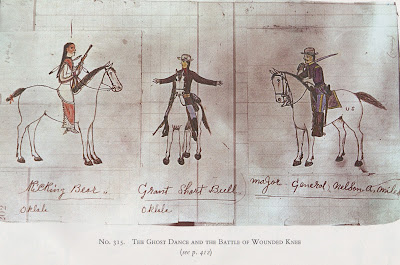 Kicking Bear. Grant Short Bull major General. Nelson A. Miles
Oklala Oklala
U S
No. 515. The Ghost Dance and the Battle of Wounded Knee
(see p. 412)